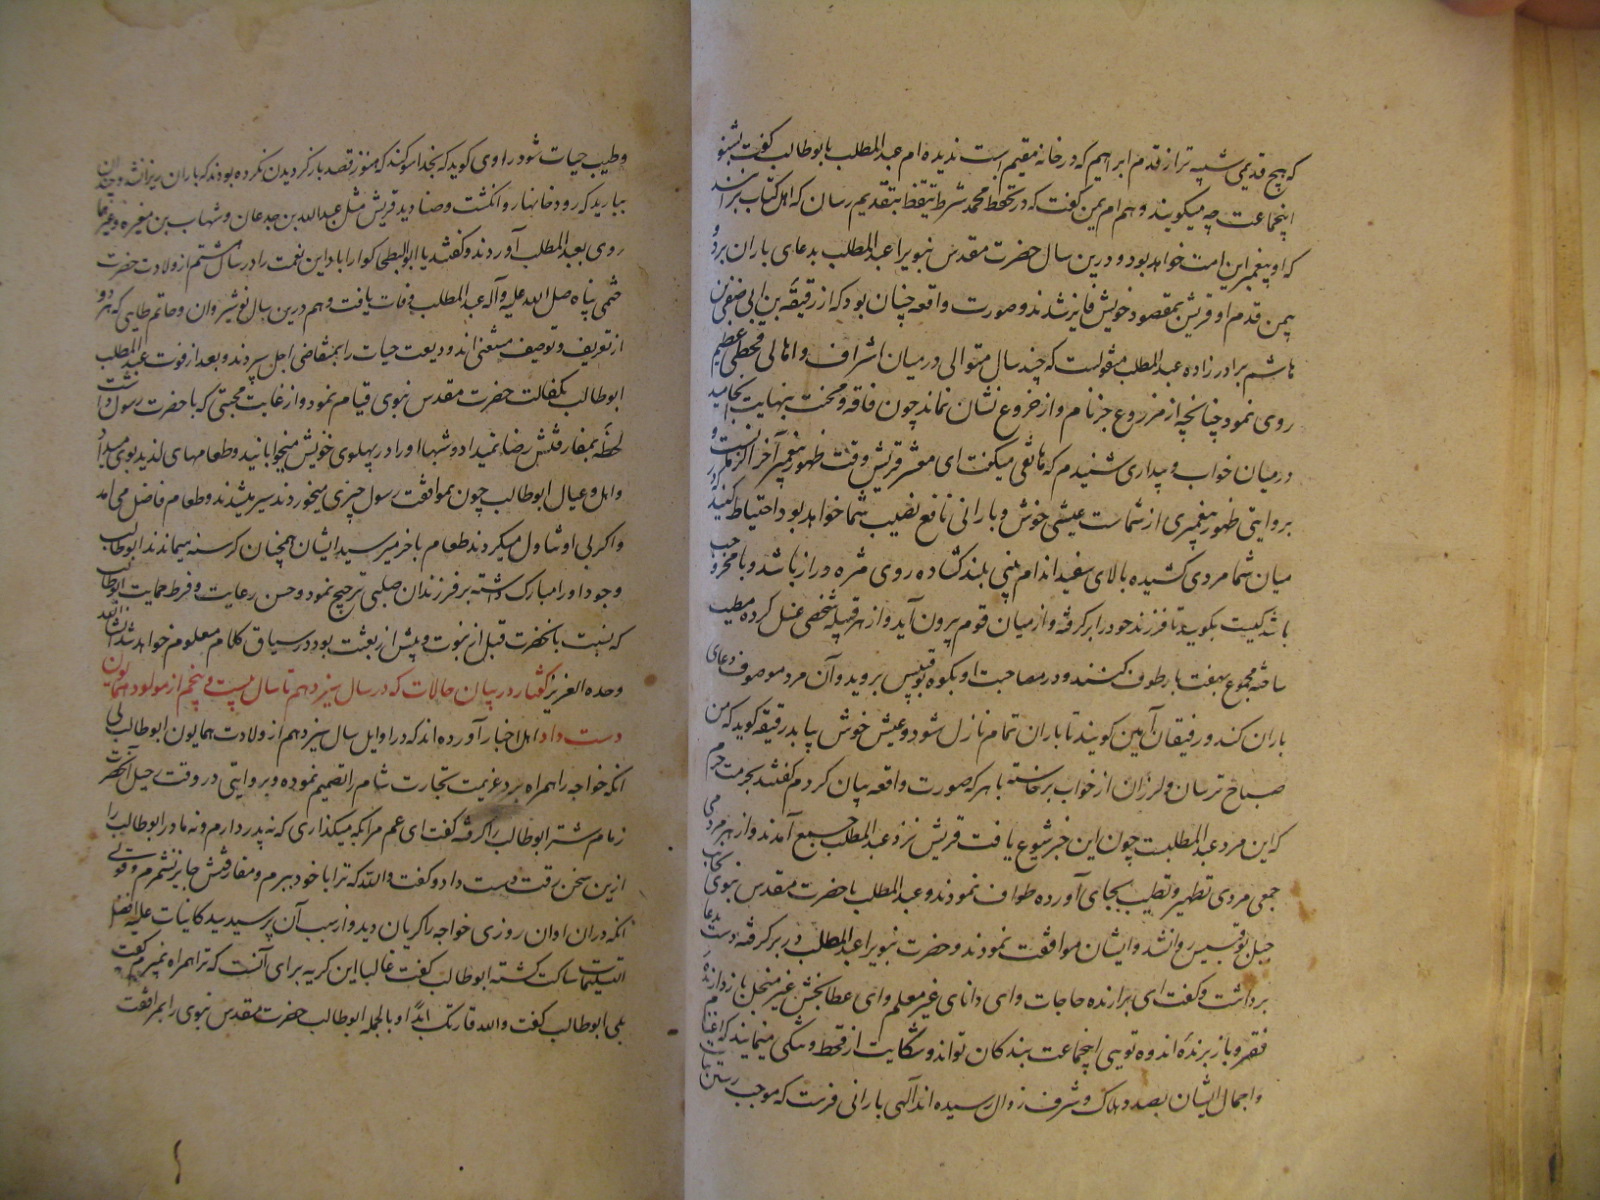 که هیچ قدمی شبیه تر از قدم ابراهیم که در خانه مقیم است ندیده ام عبدالمطلب با بوطالب گفت بشنو
اینجماعت چه میگویند و هم ام یمن گفت که در تحفظ محمد شرط تیقظ بتقدیم رسان که اهل کتاب برانند
که او پیغمبر این امت خواهد بود و درین سال حضرت مقدس نبویرا عبدالمطلب بدعای باران برد و
بیمن قدم او قریش بمقصود خویش فایز شدند و صورت واقعه چنان بود که از رقیقه بن ابی صیفی بن
هاشم برادر زاده عبدالمطلب منقولست که چند سال متوالی در میان اشراف و اهالی قحطی عظیم
روی نمود چنانچه از مزروع جز نام و از ضروع نشان نماند چون فاقه و محنت بنهایت انجامید
در میان خواب و بیداری شنیدم که هاتفی میگفت ای معشر قریش وقت ظهور پیغمبر آخر الزمانست و
بروایتی ظهور پیغمبری از شماست عیشی خوش و بارانی نافع نصیب شما خواهد بود احتیاط کنید که در
میان شما مردی کشیده بالای سفید اندام بینی بلند کشاده روی مژه دراز باشد و با
باشد کیست بگویید تا فرزند خود را برگرفته و از میان قوم بیرون آید و از هر قبیله شخصی غسل کرده مطیب
ساخته مجموع بهفت بار طوف کنند و در مصاحبت او بکوه بوقبیس بروید و آن مرد موصوف دعای
باران کند و رفیقان آمین گویند تا باران تمام نازل شود و عیش خوش بیابد رقیقه گوید که من
صباح ترسان و لرزان از خواب برخاسته با هر که صورت واقعه بیان کردم گفتند بحرمت حرم
که این مرد عبدالمطلبست چون این خبر شیوع یافت قریش نزد عبدالمطلب جمع آمدند و از هر
جمعی مردی تطهیر و تطیب بجای آورده طواف نمودند و عبدالمطلب با حضرت مقدس نبوی بجانب
جبل بوقبیس روانشد و ایشان موافقت نمودند و حضرت نبویرا عبدالمطلب در بر گرفته دست بدعا
برداشت و گفت ای برارنده حاجات و ای دانای غیر معلم و ای عطابخش غیر منجل باز دارنده
فقر و باز برنده اندوه تویی اینجماعت بندکان تواند و شکایت از قحط و تنگی مینمایند که اغنام
و اجمال ایشان بصدد هلاک و شرف زوال رسیده اند الهی بارانی فرست که موجب رستن نبات
و طیب حیات شود راوی گوید که بخدا سوکند که هنوز قصد باز گردیدن نکرده بودند که باران ریزان شد و چندان
ببارید که رودخانها روان گشت و صنادید قریش مثل عبدالله بن جدعان و شهاب بن مغیره و غیرهما
روی بعبدالمطلب آوردند و گفتند یا ابوالبطحا گوارا باد این نعمت را در سال هشتم از ولادت حضرت
ختمی پناه صلی الله علیه و آله عبدالمطلب وفات یافت و هم درین سال نوشیروان و حاتم طایی که هر دو
از تعریف و توصیف مستغنی اند ودیعت حیات را بمتقاضی اجل سپردند و بعد از فوت عبدالمطلب
ابوطالب بکفالت حضرت مقدس نبوی قیام نمود و از غایت محبتی که با حضرت رسول داشت
لحظه بمفارقتش رضا نمیداد و شبها او را در پهلوی خویش میخوابانید و طعامهای لذیذ بوی میداد
و اهل و عیال ابوطالب چون بموافقت رسول چیزی میخوردند سیر میشدند و طعام فاضل می آمد
و اگر بی او تناول میکردند طعام باخر میرسید ایشان همچنان گرسنه میماندند ابوطالب
وجود او را مبارک داشته بر فرزندان صلبی ترجیح نمود و حسن رعایت و فرط حمایت ابوطالب
که نسبت بانحضرت قبل از نبوت و پیش از بعثت بود در سیاق کلام معلوم خواهد شد انشاءالله
وحده العزیز گفتار در بیان حالات که در سال سیزدهم تا سال بیست و پنجم از مولود همایون
دست داد اهل اخبار آورده اند که در اوایل سال سیزدهم از ولادت همایون ابوطالب بی
انکه خواجه را همراه برد عزیمت تجارت شام را تصمیم نموده و بروایتی در وقت رحیل آنحضرت
زمام شتر ابوطالب را گرفته گفت ای عم مرا بکه میگذاری که نه پدر دارم و نه مادر ابوطالب را
ازین سخن رقت دست داد و گفت والله که ترا با خود ببرم و مفارقتش جایز نشمرم و قولی
انکه دران اوان روزی خواجه را گریان دید و از سبب آن پرسید سید کاینات علیه افضل
التسلیمات ساکت گشته ابوطالب گفت غالبا این گریه برای آنست که ترا همراه نمیبرم گفت
بلی ابوطالب گفت والله فارقتک ابدا و بالجمله ابوطالب حضرت مقدس نبوی را بمرافقت